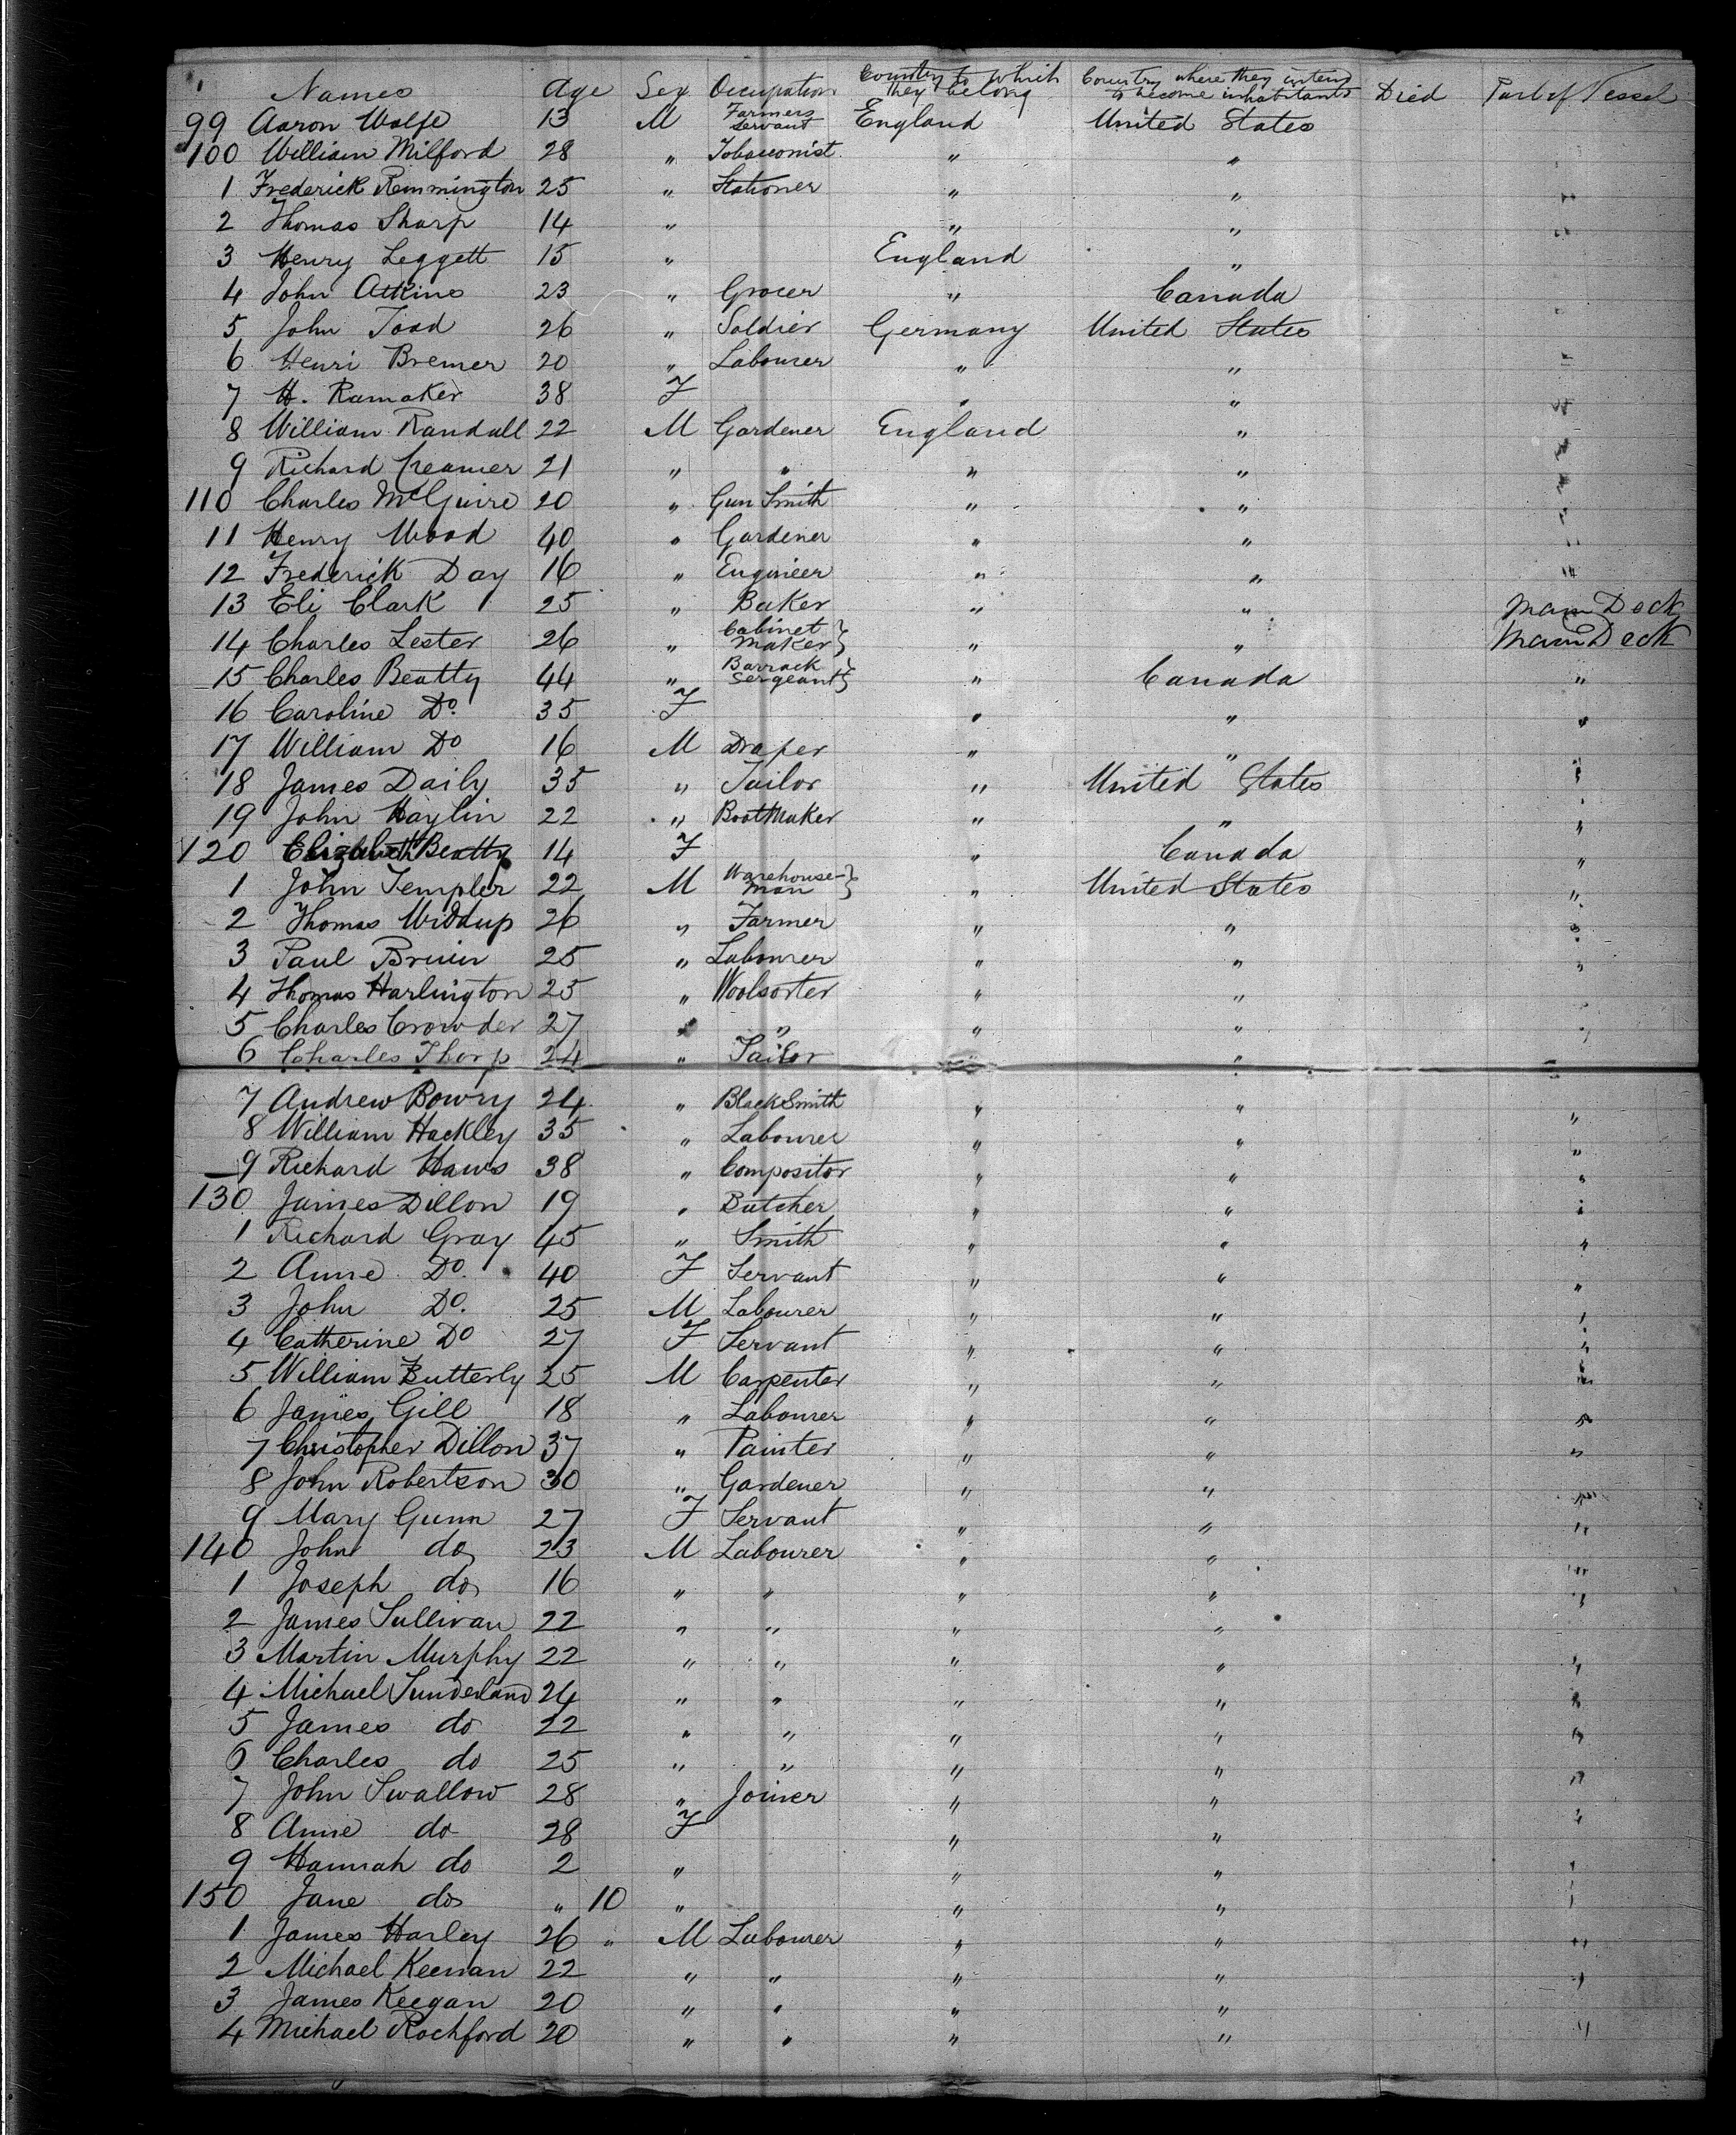 Names Age Sex Occupation Country to which they belong Country where they intend to become inhabitants Died Part of Vessel
99 Aaron Wolfe 13 M Farmers Servant England United States
100 William Milford 28 " Tobacconist " "
1 Frederick Remmington 25 " Stationer " " "
2 Thomas Sharp 14 " " " "
3 Henry Leggett 15 " England "
4 John Atkins 23 " Grocer " Canada
5 John Toad 26 " Soldier Germany United States
6 Henri Bremer 20 " Labourer " " "
7 H. Ramaker 38 F " " "
8 William Randall 22 M Gardener England " "
9 Richard Creamer 21 " " " " "
110 Charles McGuire 20 " Gun Smith " " "
11 Henry Wood 40 " Gardener " " "
12 Frederick Day 16 " Engineer " " "
13 Eli Clark 25 " Baker " " Main Deck
14 Charles Lester 26 " Cabinet Maker } " " Main Deck
15 Charles Beatty 44 " Barrack Sergeant } " Canada "
16 Caroline Do. 35 F " " "
17 William Do 16 M Draper " "
18 James Daily 35 " Tailor " United States "
19 John Haylin 22 " BootMaker " " "
120 Elizabeth Beatty 14 F " Canada "
1 John Templer 22 M Warehouse-man } " United States "
2 Thomas Widdup 26 " Farmer " " "
3 Paul Bruin 25 " Labourer " " "
4 Thomas Harlington 25 " Woolsorter " "
5 Charles Crowder 27 " " " " "
6 Charles Thorp 24 " Tailor "
7 Andrew Bowry 24 " BlackSmith " " "
8 William Hackley 35 " Labourer " " "
9 Richard Haws 38 " Compositor " " "
130 James Dillon 19 " Butcher " " "
1 Richard Gray 45 " Smith " " "
2 Anne Do. 40 F Servant " " "
3 John Do. 25 M Labourer " " "
4 Catherine Do 27 F Servant " " "
5 William Butterly 25 M Carpenter " " "
6 James Gill 18 " Labourer " " "
7 Christopher Dillon 37 " Painter " " "
8 John Robertson 30 " Gardener " " "
9 Mary Gunn 27 F Servant " " "
140 John do 23 M Labourer " " "
1 Joseph do 16 " " " " "
2 James Sullivan 22 " " " "
3 Martin Murphy 22 " " " " "
4 Michael Sunderland 24 " " " " "
5 James do 22 " " " " "
6 Charles do 25 " " " "
7 John Swallow 28 " Joiner " " "
8 Anne do 28 F " " "
9 Hannah do 2 " " " "
150 Jane do " 10 " " " "
1 James Harley 26 " M Labourer " " "
2 Michael Keenan 22 " " " " "
3 James Keegan 20 " " " "
4 Michael Rochford 20 " " " " "